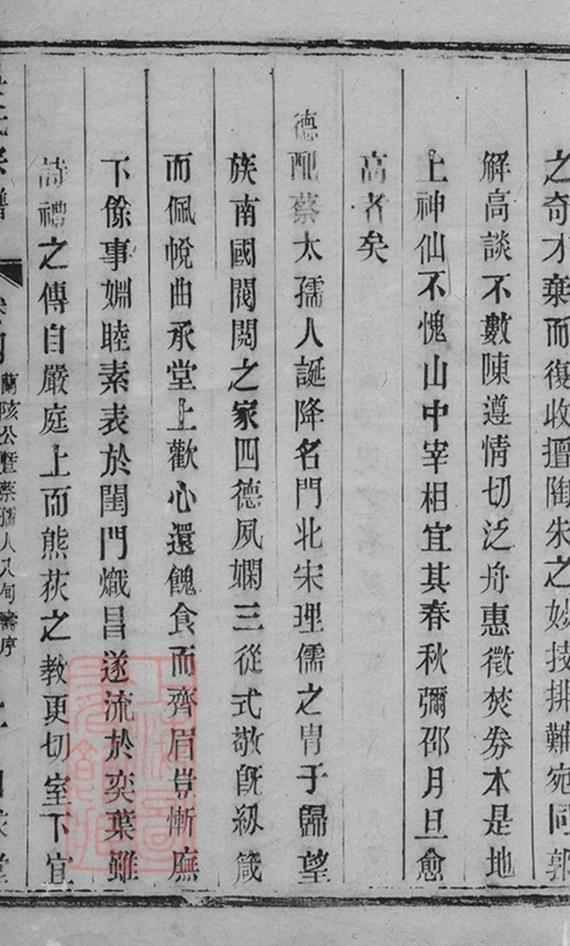 之奇才棄而復收擅陶朱之妙技排難宛同郭
解高談不數陳遵情切泛舟惠徵焚券本是地
上神仙不愧山中宰相宜其春秋彌邵月旦愈
高者矣
德配蔡太孺人誕降名門北宋理儒之胄于歸望
族南國閥閱之家四德夙嫻三從式敬旣級箴
而佩帨曲承堂上歡心還餽食而齊眉豈慚廡
下餘事婣睦素表於閨門熾昌遂流於奕葉雖
詩禮之傳自嚴庭上而熊荻之教更切室下宜
氏宗譜
蘭陔公暨蔡孺人八旬壽序
堂